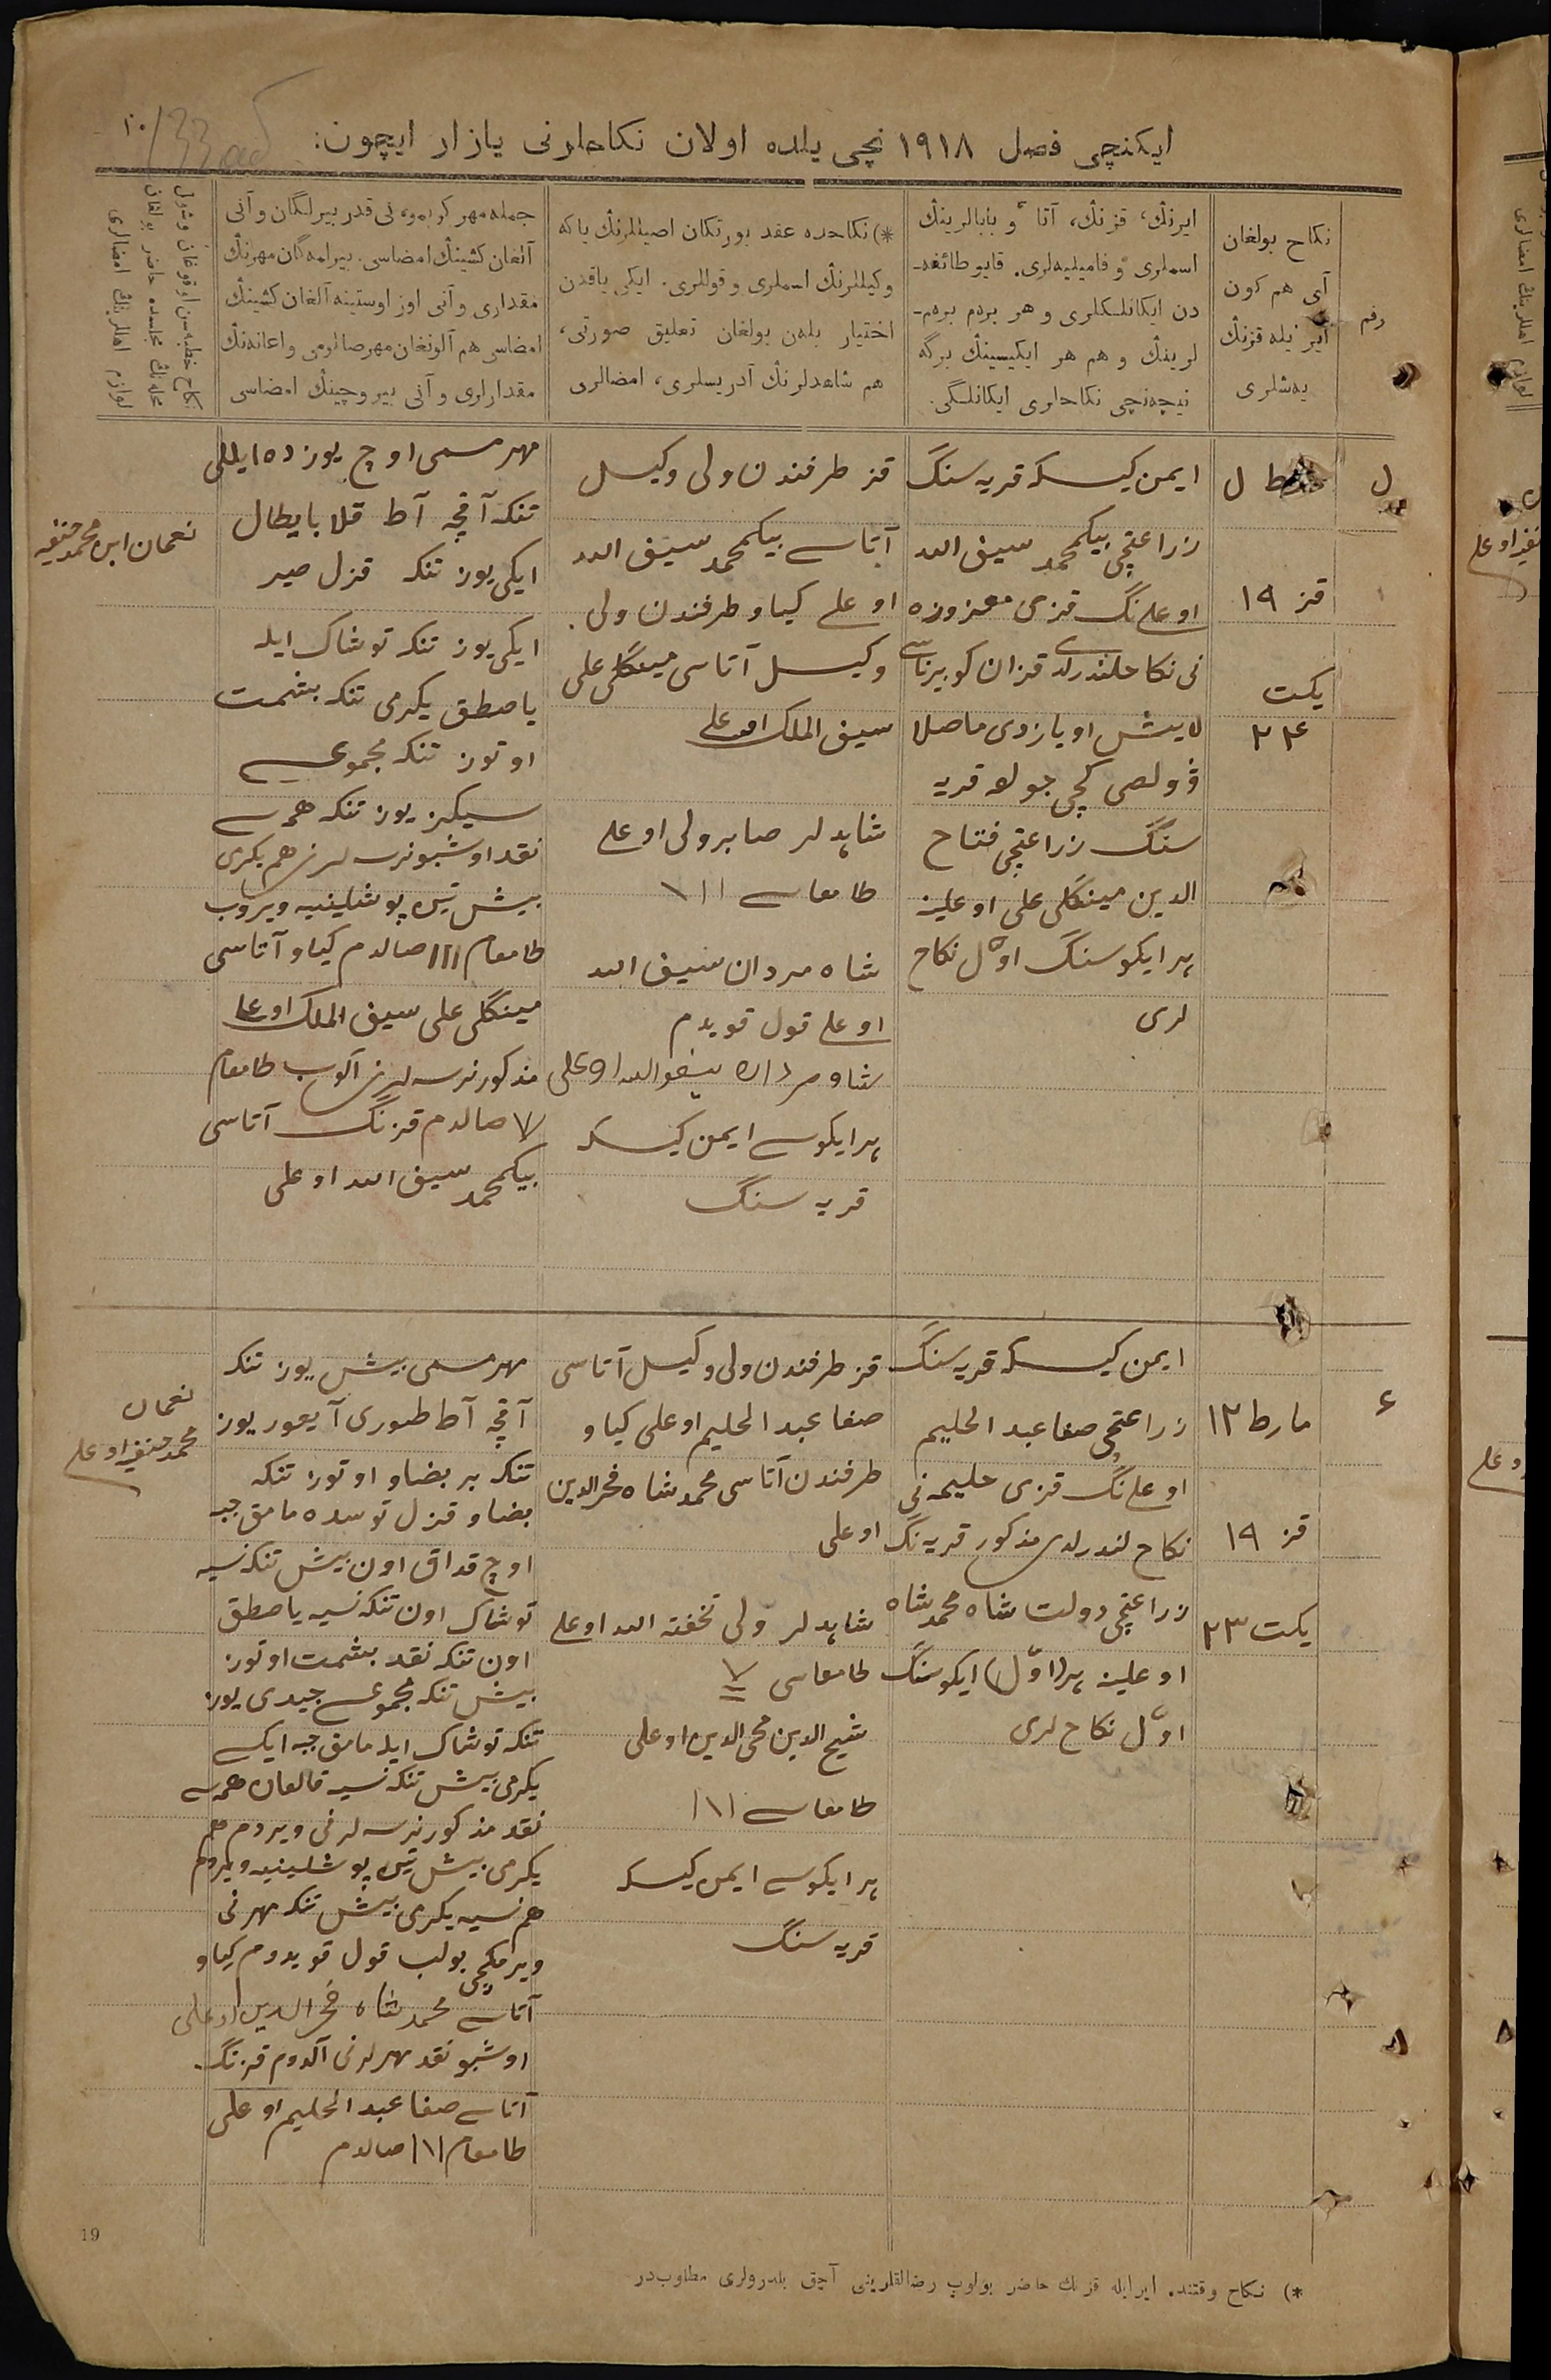 ایکنچی فصل ١٩١٨ نچی یلده اولان نکاحلرنی یازار ایچون:
رقم
نکاح بولغان
آی هم کون
ایر نیله قزنڭ
یه‌شلری
ایرنڭ، قزنڭ، آتا و بابالرینڭ
اسملری و فامیلیه‌لری. قایو طائفه‌ـ
دن ایکانلکلری و هر بردم بردم‌ـ
لرینڭ و هم هر ایکیسینڭ برگه
نیچه‌نچی نکاحلری ایکانلگی.
*) نکاحده عقد یورتکان اصیللرنڭ یاکه
وکیللرنڭ اسملری و قوللری. ایکی یاقدن
اختیار بله‌ن بولغان تعلیق صورتی،
هم شاهدلرنڭ آدریسلری، امضالری
جمله مهر کر بمو، نی قدر بیرلگان و آنی
آلغان کشینڭ امضاسی. بیرلمه‌گان مهرنڭ
مقداری و آنی اوز اوستینه آلغان کشینڭ
امضاسی هم آلونغان مهر صالومی و اعانه‌نڭ
مقدارلری و آنی بیروچینڭ امضاسی
نکاح خطبه‌سن اوقوغان و شول
محله‌نڭ مجلسده حاضر بولغان
لوازم اهللرینڭ امضالری
قز ١٩
یکت
٢٤
ایمن کیسکه قریه سنگ
زراعتچی بیکمحمد سیف الله
اوغلی نگ قزی معزوزه
نی نکاحلندرلدی قزان کوبیرناسی
لایش اویازدی ماصلا
ڤولصی کچی جولو قریه
سنگ زراعتچی فتاح
الدین مینگلی علی اوغلینه
هر ایکوسنگ اوّل نکاح
لری
قز طرفندن ولی وکیل
آتاسی بیکمحمد سیف الله
اوغلی کیاو طرفندن ولی
وکیل آتاسی مینگلی علی
سیف الملک اوغلی
شاهدلر صابر ولی اوغلی
طامغاسی ١١١
شاه مردان سیف الله
اوغلی قول قویدم
هر ایکوسی ایمن کیسکه
قریه سنگ
مهر مسمی اوچ یوزده ایللی
تنکه آقچه آط قلابایطال
ایکی یوز تنکه قزل صیر
ایکی یوز تنکه توشاک ایله
یاصطق یکرمی تنکه بشمت
اوتوز تنکه مجموعی
سیکز یوز تنکه همه‌سی
نقد اوشبو نرسه‌لرنی هم یکرمی
بیش تین پوشلینیه ویروب
طامغام ١١١ صالدم کیاو آتاسی
مینگلی علی سیف الملک اوغلی
مذکور نرسه‌لرنی آلوب طامغام
صالدم قزنگ آتاسی
بیکمحمد سیف الله اوغلی
نعمان ابن محمد حنفیه
٢
مارط ١٢
قز ١٩
یکت ٢٣
ایمن کیسکه قریه سنگ
زراعتچی صفا عبد الحلیم
اوغلی نگ قزی حلیمه نی
نکاح لندرلدی مذکور قریه نگ
زراعتچی دولت شاه محمد شاه
اوغلینه هر (اوّل) ایکوسنگ
اوّل نکاح لری
قز طرفندن ولی وکیل آتاسی
صفا عبد الحلیم اوغلی کیاو
طرفندن آتاسی محمد شاه فخرالدین
اوغلی
شاهدلر ولی تحفة الله اوغلی
طامغاسی
شیخ الدین محی الدین اوغلی
طامغاسی ١١١
هر ایکوسی ایمن کیسکه
قریه سنگ
مهر مسمی بیش یوز تنکه
آقچه آط طوری آیغور یوز
تنکه بر بضاو اوتوز تنکه
بضاو قزل توسده مامق جبه
اوچ قداق اون بیش تنکه نسیه
توشاک اون تنکه نسیه یاصطق
اون تنکه نقد بشمت اوتوز
بیش تنکه مجموعی جیدی یوز
تنکه توشاک ایله مامق جبه ایکسی
یکرمی بیش تنکه نسیه قالغان همه‌سی
نقد مذکور نرسه‌لرنی ویردم هم
یکرمی بیش تین پوشلینیه ویردم
هم نسیه یکرمی بیش تنکه مهرنی
ویرمکچی بولب قول قویدوم کیاو
آتاسی محمد شاه فخر الدین اوغلی
اوشبو نقد مهرلرنی آلدوم قزنگ
آتاسی صفا عبد الحلیم اوغلی
طامغام ١١١ صالدم
نعمان
محمد حنفیه اوغلی
19
*) نکاح وقتنده ایرایله قزنڭ حاضر بولوب رضالقلرینی آچق بلدرولری مطلوب‌در